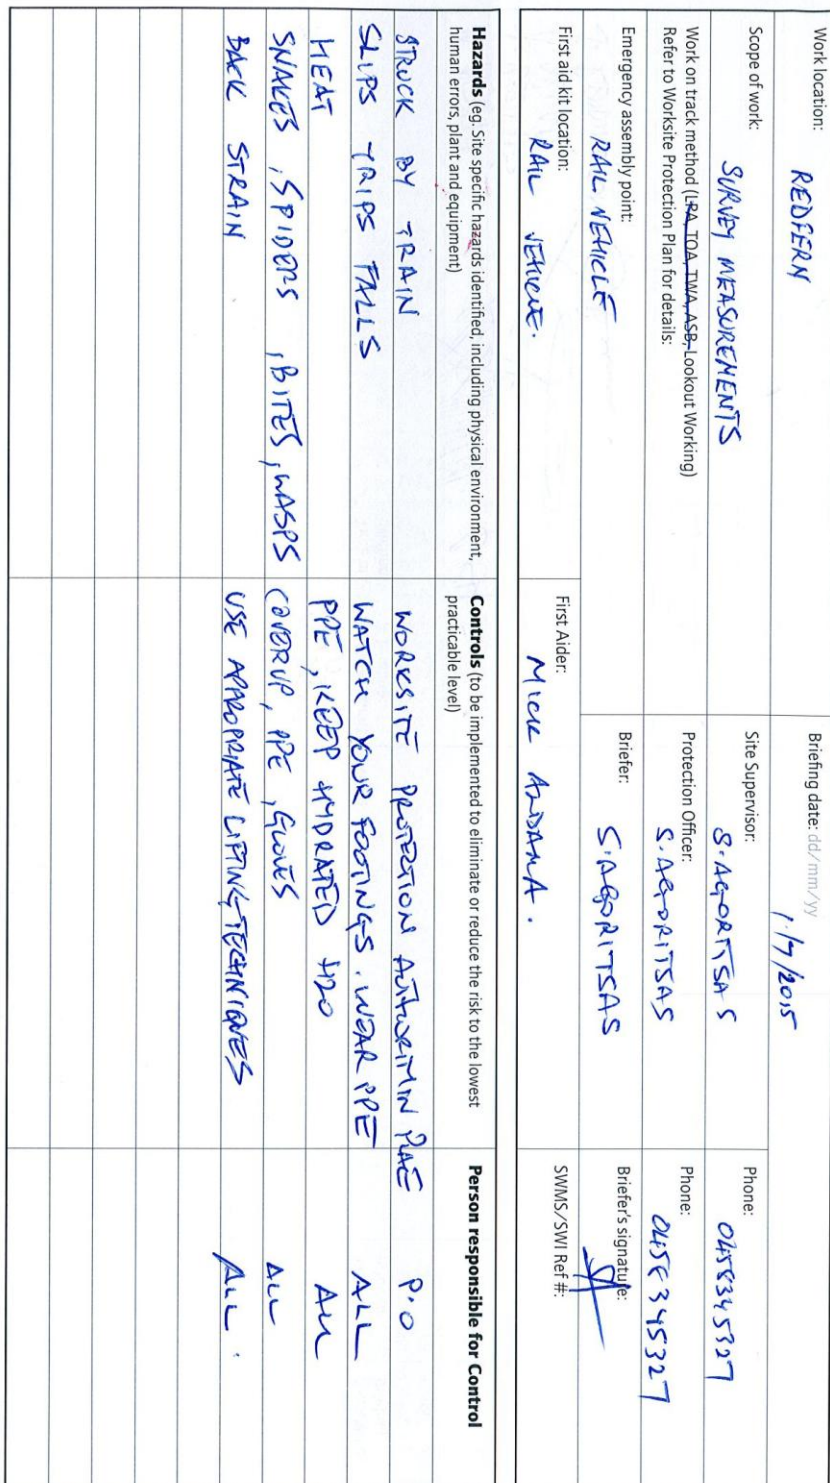 Work location:
REDFERN
Briefing date: dd/mm/yy
1/7/2015
Scope of work:
SURVEY MEASUREMENTS
Site Supervisor:
S. AGORITSAS
Phone:
0458345327
Work on track method (LRA, TOA, TWA, ASB, Lookout Working)
Refer to Worksite Protection Plan for details:
Protection Officer:
S. AGORITSAS
Phone:
0458345327
Emergency assembly point:
RAIL VEHICLE
Briefer:
S. AGORITSAS
Briefer's signature:
First aid kit location:
RAIL VEHICLE.
First Aider:
MICK
SWMS/SWI Ref #:
Hazards (eg. Site specific hazards identified, including physical environment,
human errors, plant and equipment)
Controls (to be implemented to eliminate or reduce the risk to the lowest
practicable level)
Person responsible for Control
STRUCK BY TRAIN
WORKSITE PROTECTION
P.O
SLIPS TRIPS FALLS
WATCH YOUR FOOTINGS. WEAR PPE
ALL
HEAT
PPE, KEEP HYDRATED H20
ALL
SNAKES, SPIDERS, BITES, WASPS
COVERUP, PPE, GLOVES
ALL
BACK STRAIN
USE APPROPRIATE LIFTING TECHNIQUES
ALL.